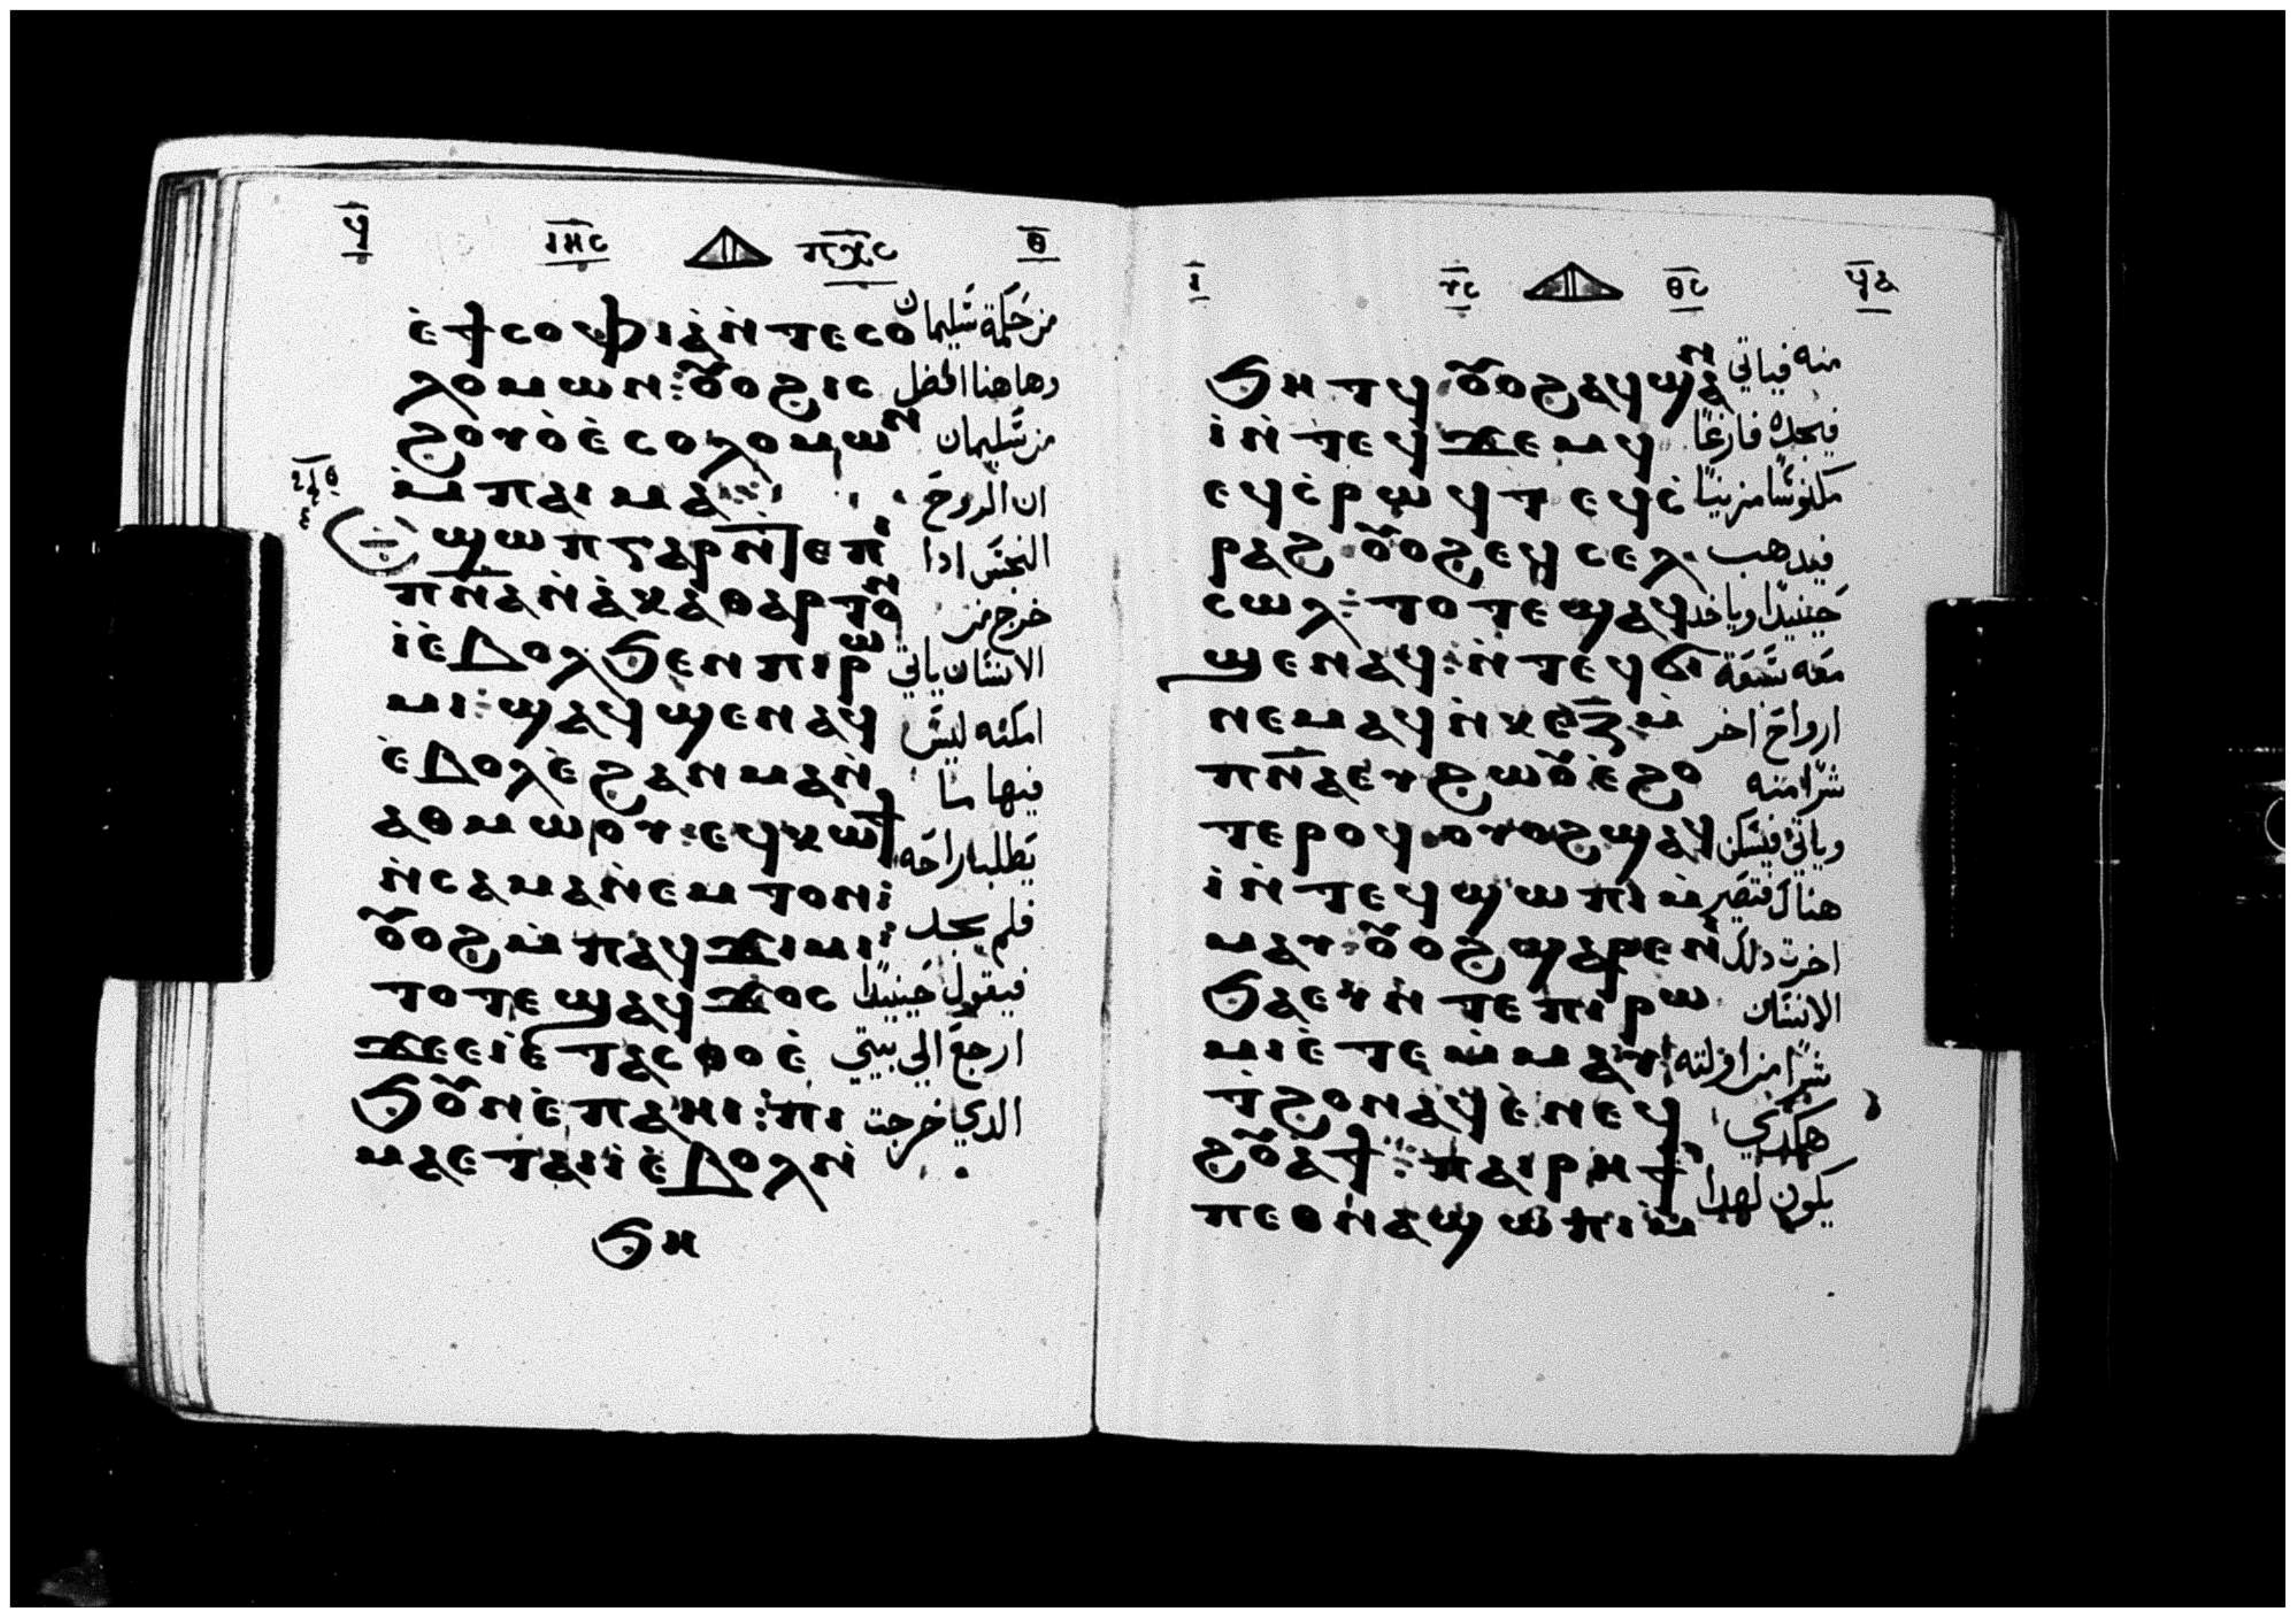 ϥ̅ ⲓⲏ̅ⲥ ⲡⲭ̅ⲥ ⲑ̅
ⲉ̀ϯⲥⲟⲫⲓⲁ̀ⲛ̀ⲧⲉⲥⲟ من حكمة سليمان
ⲗⲟⲙⲱⲛ: ⲟⲩⲟϩⲓⲥ وهاهنا افضل
ϩⲟⲩⲟ̀ⲉ̀ⲥⲟⲗⲟⲙⲱⲛ من سليمان
ⲙ̀ⲡⲁⲓⲙⲁ ان الروح
ϣⲱⲡ ⲅⲁⲣ ⲛ̀ⲧⲉⲡⲓ النجس ادا
ⲡⲛ̅ⲁⲛ̀ⲁ̀ⲕⲁⲑⲁⲣⲧⲟⲛ خرج من
ⲓ̀ⲉ̀ⲃⲟⲗϧⲉⲛⲡⲓⲣⲱ الانسان ياتي
ⲙⲓ: ϣⲁϥϣⲉⲛⲁϥ امكنه ليس
ⲉ̀ⲃⲟⲗⲉ̀ϩⲁⲛⲙⲁⲛ̀ فيها ما
ⲁⲑⲙⲱⲟⲩ: ⲉϥⲕⲱϯ يطلب راحه
ⲛ̀ⲥⲁⲙⲁⲛ̀ⲉⲙⲧⲟⲛ: فلم يجد
ⲟⲩⲟϩⲙ̀ⲡⲁϥϫⲓⲙⲓ:
ⲧⲟⲧⲉϣⲁϥϫⲟⲥ فيقول حينيدا
ϫⲉⲉⲓⲉ̀ⲧⲁⲥⲑⲟⲉ̀ ارجع الي بيتي
ϧⲟⲩⲛⲉ̀ⲡⲁⲏⲓ: ⲡⲓ الدي خرجت
ⲙⲁⲉⲧⲁⲓⲓ̀ⲉ̀ⲃⲟⲗⲛ̀
ϧⲏ
ⲓ̅ ⲩ̅ⲥ ⲑ̅ⲥ ϥ̅ⲁ
ϧⲏⲧϥ ⲟⲩⲟϩⲁϥϣⲁⲛ منه فياتي
ⲓ̀ⲛ̀ⲧⲉϥϫⲉⲙϥ فيجده فارغا
ⲉϥⲥ̀ⲣⲱϥⲧ ⲉϥⲥ̀ مكنوسا مزينا
ⲣⲁϩ ⲟⲩⲟϩⲉϥⲥⲉⲗ فيدهب
ⲥⲱⲗ: ⲧⲟⲧⲉϣⲁϥ حينيدا وياخد
ϣⲉⲛⲁϥ: ⲛ̀ⲧⲉϥϭⲓ معه سبعة
ⲛⲉⲙⲁϥⲛ̀ⲕⲉⲍ̅ⲙ̀ ارواح اخر
ⲡⲛ̅ⲁⲉⲩϩⲱⲟⲩⲉ̀ϩⲟ شرا منه
ⲧⲉⲣⲟϥ ⲟⲩⲟϩϣⲁϥ وياتي فيسكن
ⲓ̀ⲛ̀ⲧⲉϥϣⲱⲡⲓⲙ̀ هناك فتصير
ⲙⲁⲩ ⲟⲩⲟϩϣⲁⲣⲉⲛ̀ اخرت دلك
ϧⲁⲉⲩⲛ̀ⲧⲉⲡⲓⲣⲱ الانسان
ⲙⲓⲉ̀ⲧⲉⲙ̀ⲙⲁⲩ شرا من اولته
ⲧ̀ϩⲟⲛⲁϥⲉ̀ⲛⲉϥ هكدي
ϩⲟⲩⲁϯ: ⲡⲁⲓⲣⲏϯ يكون لهدا
ⲡⲉⲑⲛⲁϣⲱⲡⲓⲙ̀